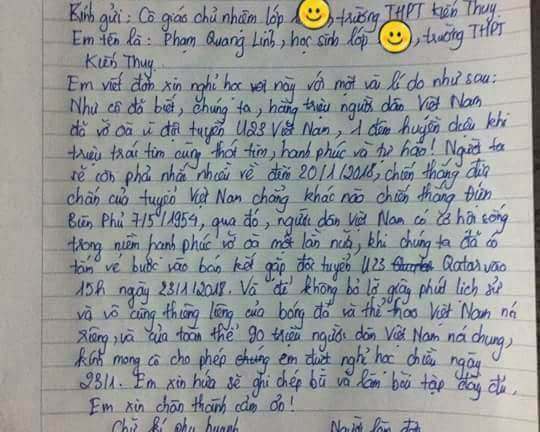 Kính gửi: Cô giáo chủ nhiệm lớp , trường THPT Kiến Thụy
Em tên là: Phạm Quang Linh, học sinh lớp , trường THPT
Kiến Thụy
Em viết đơn xin nghỉ học này với một vài lí do như sau:
Như cô đã biết, chúng ta, hàng triệu người dân Việt Nam
đã vỡ oà vì đội tuyển U23 Việt Nam, 1 đêm huyền diệu khi
triệu trái tim cùng thót tim, hạnh phúc và tự hào! Người ta
sẽ còn phải nhắc nhiều về đêm 20/1/2018, chiến thắng địa
chấn của tuyển Việt Nam chẳng khác nào chiến thắng Điện
Biên Phủ 7/5/1954, qua đó, người dân Việt Nam có cơ hội sống
trong niềm hạnh phúc vỡ oà một lần nữa, khi chúng ta đã có
tấm vé bước vào bán kết gặp đội tuyển U23 Qatar vào
15h ngày 23/1/2018. Và để không bỏ lỡ giây phút lịch sử
và vô cùng thiêng liêng của bóng đá và thể thao Việt Nam nói
riêng, và của toàn thể 90 triệu người dân Việt Nam nói chung,
kính mong cô cho phép em được nghỉ học chiều ngày
23/1. Em xin hứa sẽ ghi chép bù và làm bài tập đầy đủ.
Em xin chân thành cảm ơn!
Chữ kí phụ huynh Người làm đơn